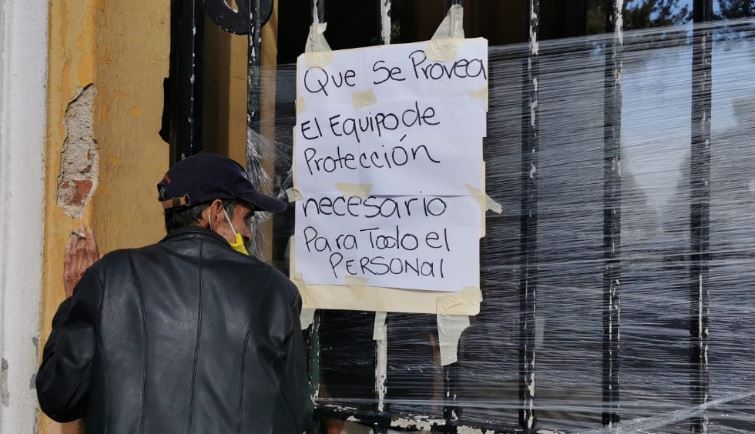 Que Se Provea
El Equipo de
Protección
necesario
Para Todo el
PERSONAl